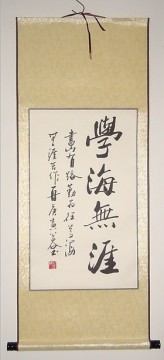 學海無涯
書山有路勤為徑學海
無涯苦作舟